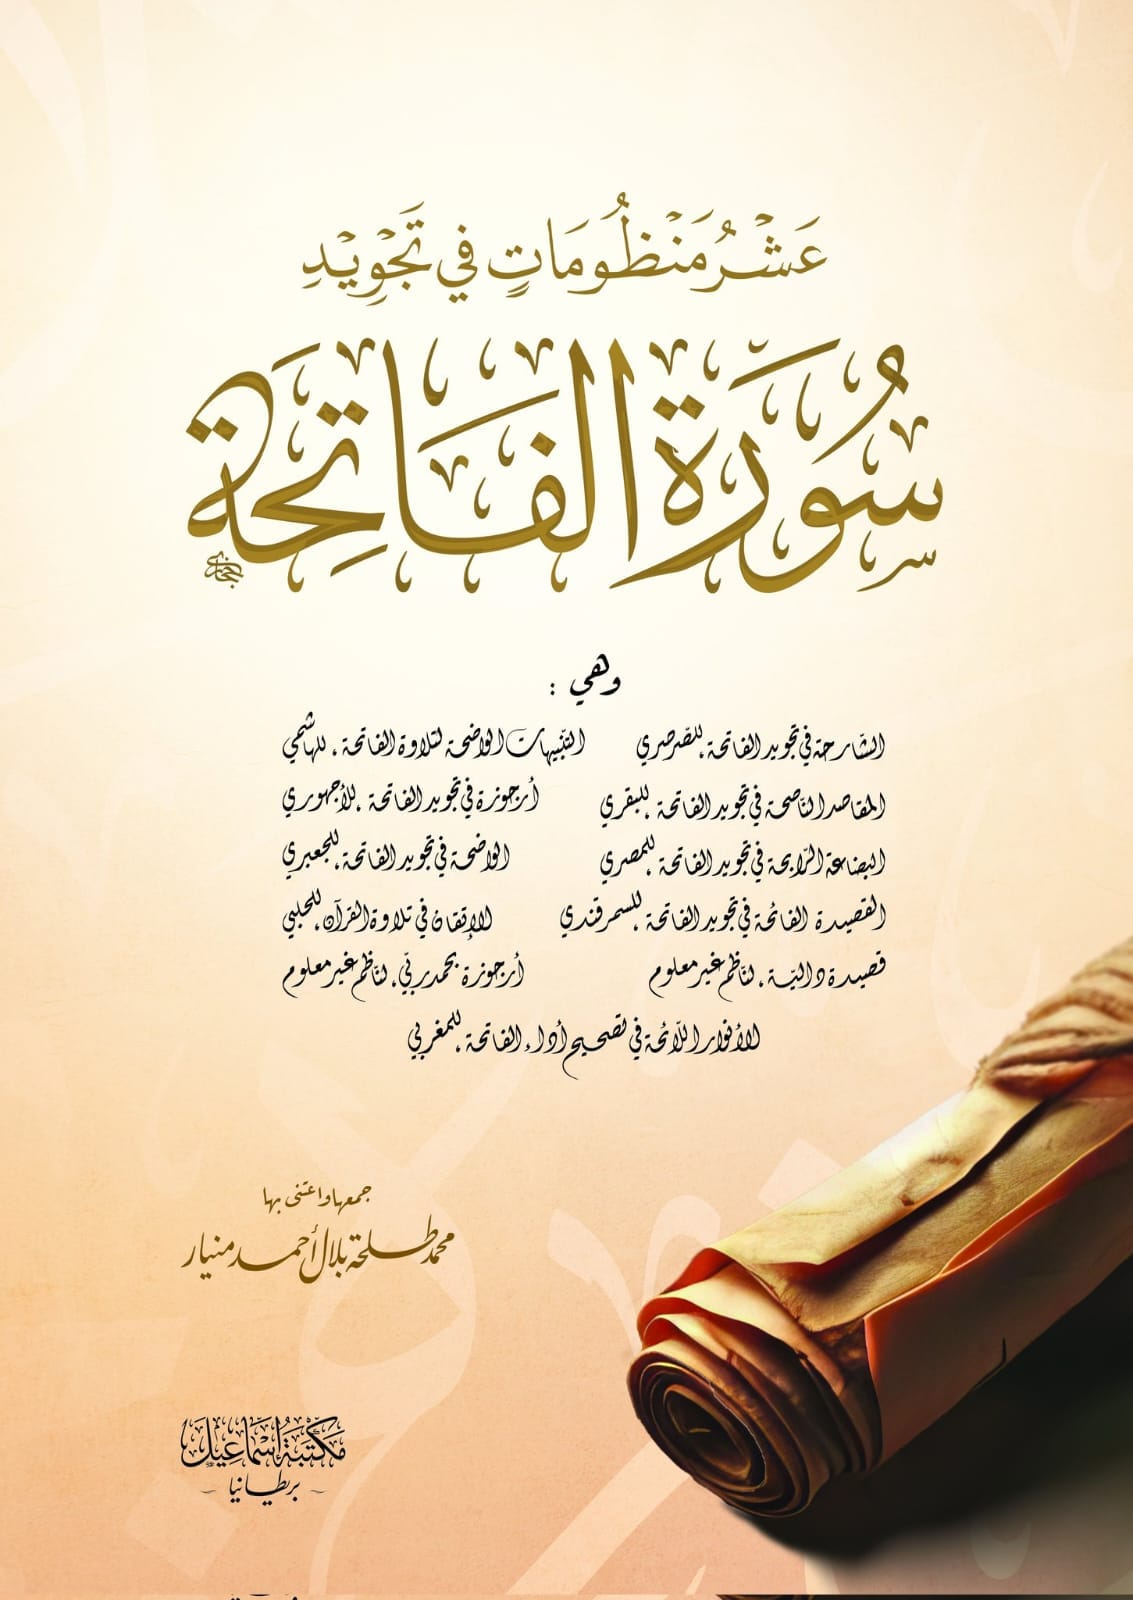 عَشْرُ مَنْظُومَاتٍ فِي تَجْوِيْدِ
سُورَة الفَاتِحَة
وهي :
الشّارحة في تجويد الفاتحة، للصّرصري
التّنبيهات الواضحة لتلاوة الفاتحة، للهاشمي
المقاصد النّاصحة في تجويد الفاتحة، للبقري
أرجوزة في تجويد الفاتحة، للأجهوري
البضاعة الرّابحة في تجويد الفاتحة، للمصري
الواضحة في تجويد الفاتحة، للجعبري
القصيدة الفائحة في تجويد الفاتحة، للسمرقندي
الإتقان في تلاوة القرآن، للحلبي
قصيدة داليّة، لناظم غير معلوم
أرجوزة بحمد ربّي، لناظم غير معلوم
الأنوار اللّائحة في تصحيح أداء الفاتحة، للمغربي
جمعها واعتنى بها
محمد طلحة بلال أحمد منيار
مَكْتَبَةُ إِسْمَاعِيل
- بريطانيا -